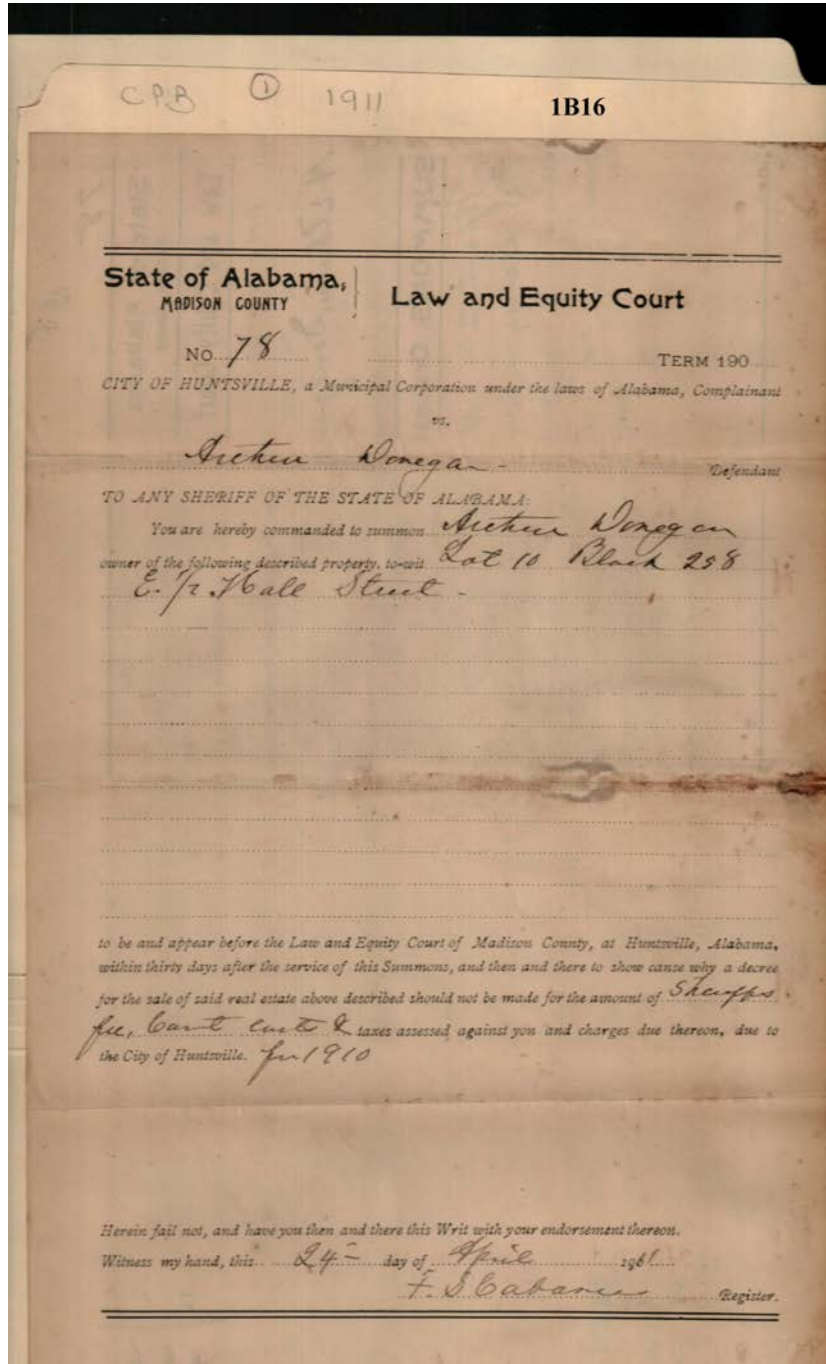 CPB ① 1911 1B16
State of Alabama, Law and Equity Court
MADISON COUNTY
No. 78 TERM 190
CITY OF HUNTSVILLE, a Municipal Corporation under the laws of Alabama, Complainant
vs.
Arthur Donegan Defendant
TO ANY SHERIFF OF THE STATE OF ALABAMA:
You are hereby commanded to summon Arthur Donegan
owner of the following described property, to-wit Lot 10 Block 298
E. Hall Street
to be and appear before the Law and Equity Court of Madison County, at Huntsville, Alabama,
within thirty days after the service of this Summons, and then and there to show cause why a decree
for the sale of said real estate above described should not be made for the amount of Sheriffs
fee, Court costs & taxes assessed against you and charges due thereon, due to
the City of Huntsville. for 1910
Herein fail not, and have you then and there this Writ with your endorsement thereon.
Witness my hand, this 24 day of April 1911
F. S. Cabaniss Register.